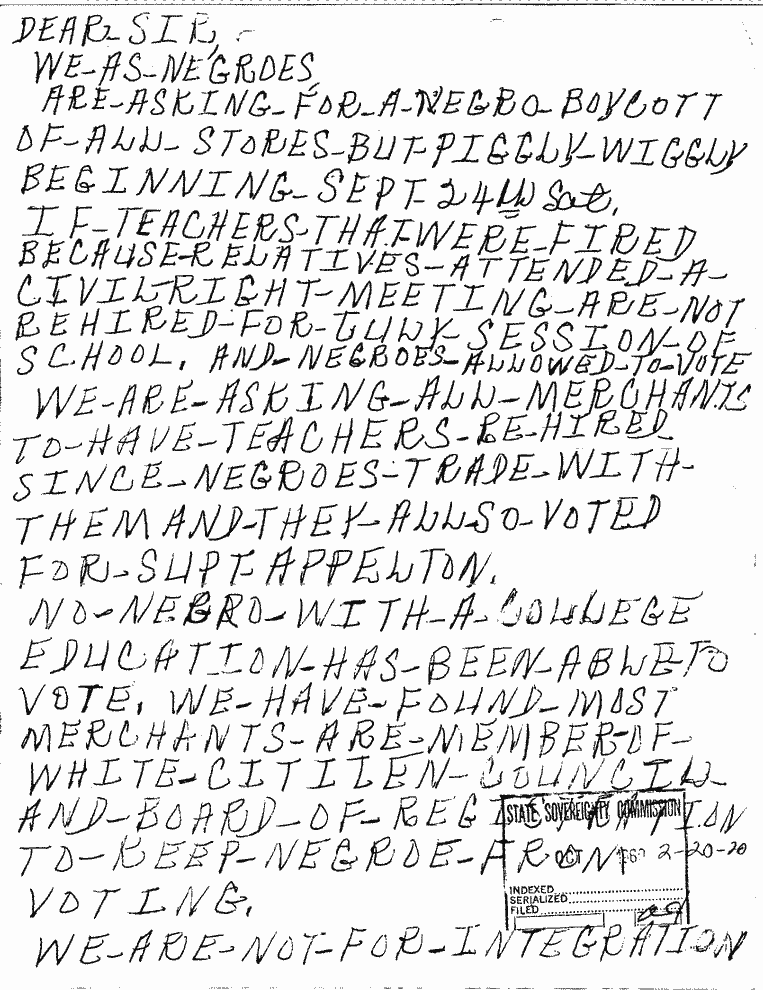 DEAR SIR,
WE-AS-NEGROES,
ARE-ASKING-FOR-A-NEGRO-BOYCOTT
OF-ALL-STORES-BUT-PIGGLY-WIGGLY
BEGINNING-SEPT. 24th Sat.
IF-TEACHERS-THAT-WERE-FIRED
BECAUSE-RELATIVES-ATTENDED-A-
CIVIL-RIGHT-MEETING-ARE-NOT
REHIRED-FOR-JULY-SESSION-OF
SCHOOL. AND-NEGROES-ALLOWED-TO-VOTE
WE-ARE-ASKING-ALL-MERCHANTS
TO-HAVE-TEACHERS-RE-HIRED
SINCE-NEGROES-TRADE-WITH-
THEM AND-THEY-ALLSO-VOTED
FOR-SUPT-APPELTON.
NO-NEGRO-WITH-A-COLLEGE
EDUCATION-HAS-BEEN-ABLE-TO
VOTE. WE-HAVE-FOUND-MOST
MERCHANTS-ARE-MEMBER-OF-
WHITE-CITIZEN-COUNCIL-
AND-BOARD-OF-REGISTRATION
STATE SOVEREIGNTY COMMISSION
TO-KEEP-NEGROE-FROM
OCT 2-20-20
VOTING.
INDEXED
SERIALIZED
FILED
WE-ARE-NOT-FOR-INTEGRATION